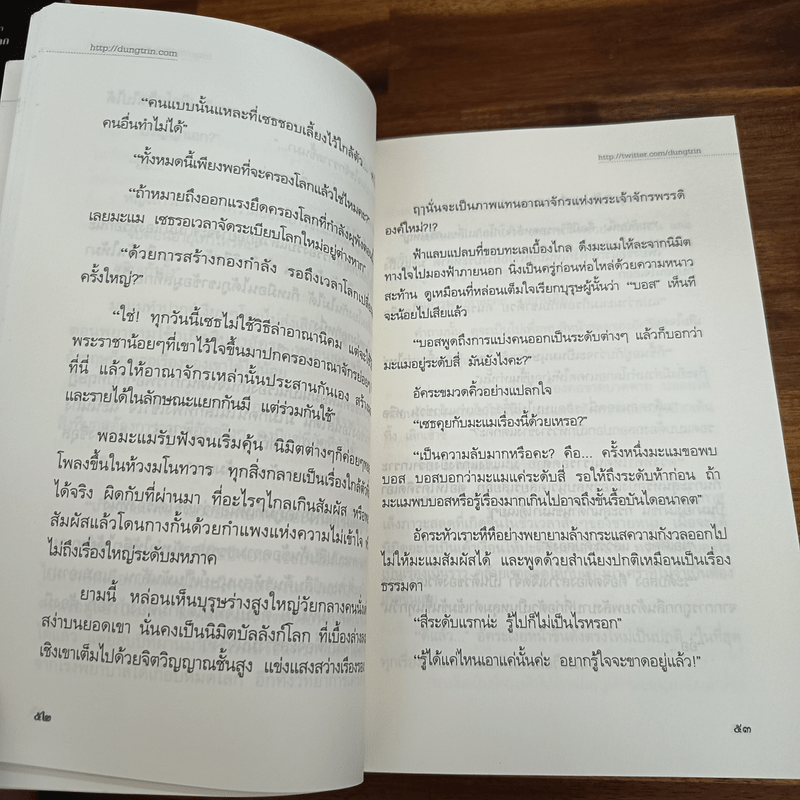 http://dungtrin.com
“คนแบบนั้นแหละที่เซธชอบเลี้ยงไว้ใกล้ตัว...
คนอื่นทำไม่ได้”
“ทั้งหมดนี้เพียงพอที่จะครองโลกแล้วใช่ไหมคะ?”
“ถ้าหมายถึงออกแรงยึดครองโลกที่กำลังผุพัง
เลยมะแม เซธรอเวลาจัดระเบียบโลกใหม่อยู่ต่างหาก”
“ด้วยการสร้างกองกำลัง รอถึงเวลาโลกเปลี่ยน
ครั้งใหญ่?”
“ใช่! ทุกวันนี้เซธไม่ใช้วิธีล่าอาณานิคม แต่จะใช้
พระราชาน้อยๆที่เขาไว้ใจขึ้นมาปกครองอาณาจักรย่อยๆ
ที่นี่ แล้วให้อาณาจักรเหล่านั้นประสานกันเอง สร้าง
และรายได้ในลักษณะแยกกันมี แต่ร่วมกันใช้”
พอมะแมรับฟังจนเริ่มคุ้น นิมิตต่างๆก็ค่อยๆ
โพลงขึ้นในห้วงมโนทวาร ทุกสิ่งกลายเป็นเรื่องใกล้ตัว
ได้จริง ผิดกับที่ผ่านมา ที่อะไรๆไกลเกินสัมผัส หรือ
สัมผัสแล้วโดนกางกั้นด้วยกำแพงแห่งความไม่เข้าใจ
ไม่ถึงเรื่องใหญ่ระดับมหภาค
ยามนี้ หล่อนเห็นบุรุษร่างสูงใหญ่วัยกลางคนนั่ง
สง่าบนยอดเขา นั่นคงเป็นนิมิตบัลลังก์โลก ที่เบื้องล่าง
เชิงเขาเต็มไปด้วยจิตวิญญาณชั้นสูง แข่งแสงสว่างเรืองรอง
๕๒
http://twitter.com/dungtrin
ฤๅนั่นจะเป็นภาพแทนอาณาจักรแห่งพระเจ้าจักรพรรดิ
องค์ใหม่?!?
ฟ้าแลบแปลบที่ขอบทะเลเบื้องไกล ดึงมะแมให้ละจากนิมิต
ทางใจไปมองฟ้าภายนอก นิ่งเป็นครู่ก่อนห่อไหล่ด้วยความหนาว
สะท้าน ดูเหมือนที่หล่อนเต็มใจเรียกบุรุษผู้นั้นว่า “บอส” เห็นที
จะน้อยไปเสียแล้ว
“บอสพูดถึงการแบ่งคนออกเป็นระดับต่างๆ แล้วก็บอกว่า
มะแมอยู่ระดับสี่ มันยังไงคะ?”
อัคระขมวดคิ้วอย่างแปลกใจ
“เซธคุยกับมะแมเรื่องนี้ด้วยเหรอ?”
“เป็นความลับมากหรือคะ? คือ... ครั้งหนึ่งมะแมขอพบ
บอส บอสบอกว่ามะแมแค่ระดับสี่ รอให้ถึงระดับห้าก่อน ถ้า
มะแมพบบอสหรือรู้เรื่องมากเกินไปอาจถึงขั้นรื้อบันไดอนาคต”
อัคระหัวเราะหึหึอย่างพยายามล้างกระแสความกังวลออกไป
ไม่ให้มะแมสัมผัสได้ และพูดด้วยสำเนียงปกติเหมือนเป็นเรื่อง
ธรรมดา
“สี่ระดับแรกน่ะ รู้ไปก็ไม่เป็นไรหรอก”
“รู้ได้แค่ไหนเอาแค่นั้นค่ะ อยากรู้ใจจะขาดอยู่แล้ว!”
๕๓